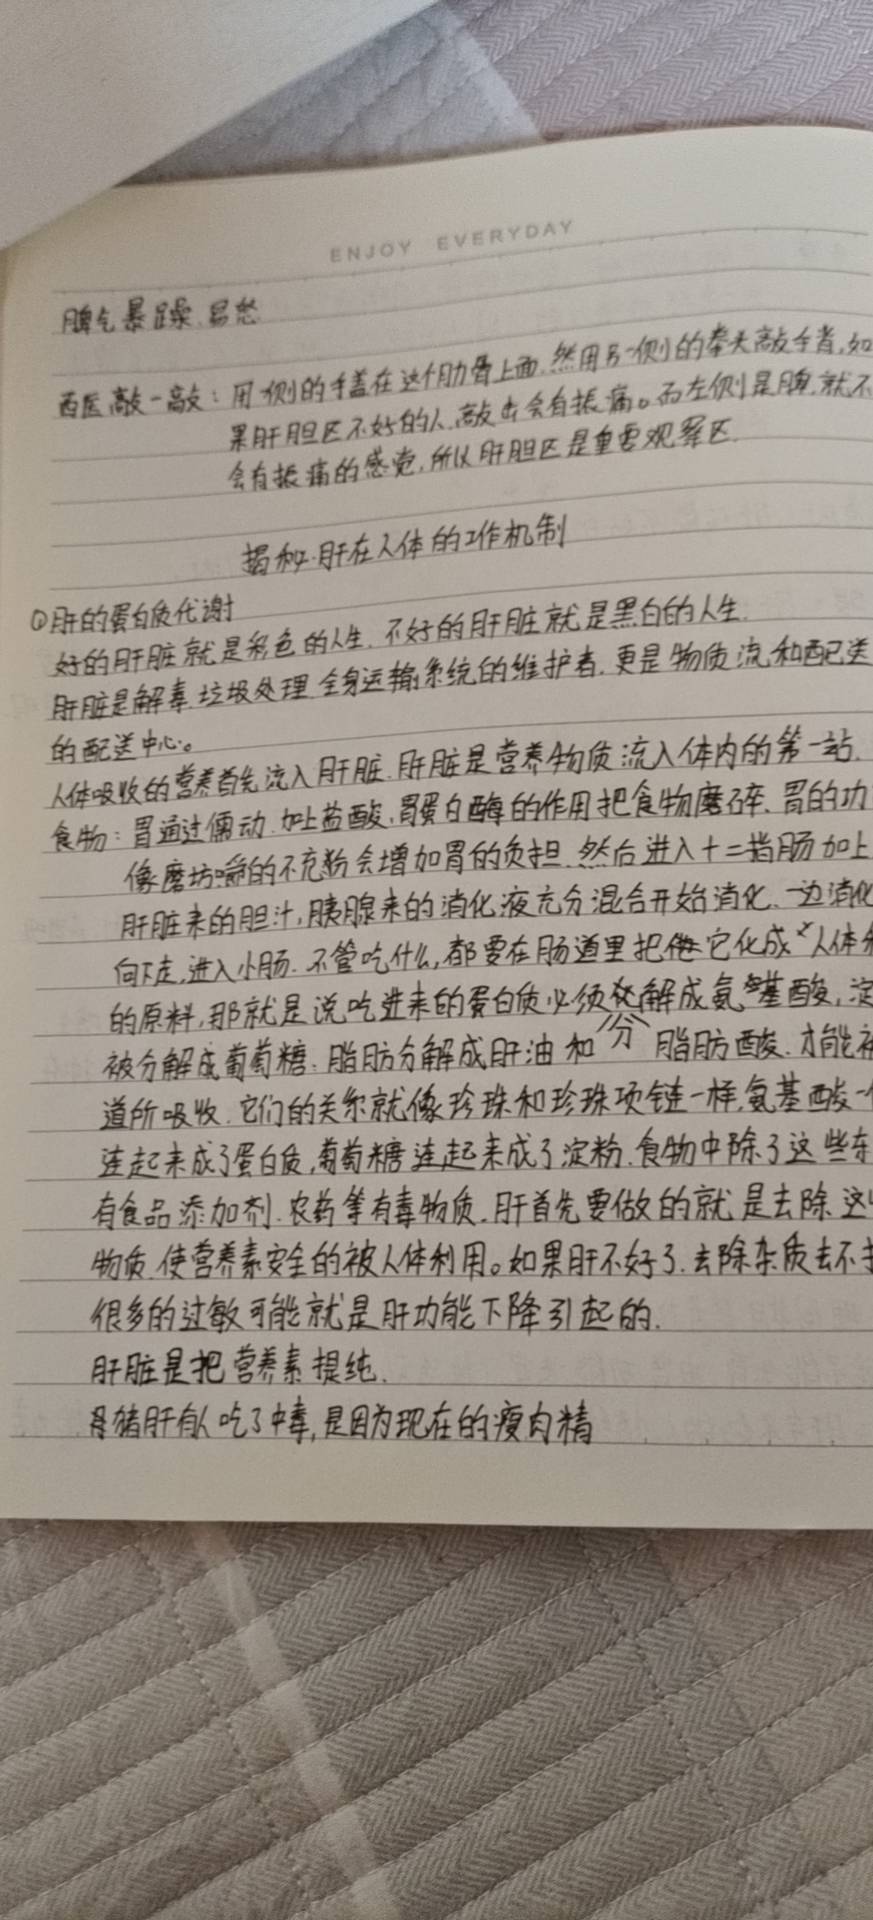 ENJOY EVERYDAY
脾气暴躁.易怒
西医敲一敲:用一侧的手盖在这个肋骨上面.然用另一侧的拳头敲手背,如
果肝胆区不好的人.敲击会有振痛。而左侧是脾.就不
会有振痛的感觉,所以肝胆区是重要观察区.
揭秘.肝在人体的工作机制
①肝的蛋白质代谢
好的肝脏就是彩色的人生.不好的肝脏就是黑白的人生.
肝脏是解毒.垃圾处理.全身运输系统的维护者.更是物质流和配送
的配送中心。
人体吸收的营养首先流入肝脏.肝脏是营养物质流入体内的第一站.
食物:胃通过儒动.加上盐酸,胃蛋白酶的作用把食物磨碎、胃的功
像磨坊嚼的不充粉会增加胃的负担.然后进入十二指肠加上
肝脏来的胆汁,胰腺来的消化液充分混合开始消化、一边消化
向下走,进入小肠.不管吃什么,都要在肠道里把它化成人体
的原料,那就是说吃进来的蛋白质必须分解成氨基酸,淀
被分解成葡萄糖.脂肪分解成肝油和脂肪酸.才能被
道所吸收.它们的关系就像珍珠和珍珠项链一样,氨基酸一
连起来成了蛋白质,葡萄糖连起来成了淀粉.食物中除了这些东
有食品添加剂.农药等有毒物质.肝首先要做的就是去除这
物质.使营养素安全的被人体利用。如果肝不好了.去除杂质去不
很多的过敏可能就是肝功能下降引起的.
肝脏是把营养素提纯.
猪肝有人吃了中毒,是因为现在的瘦肉精